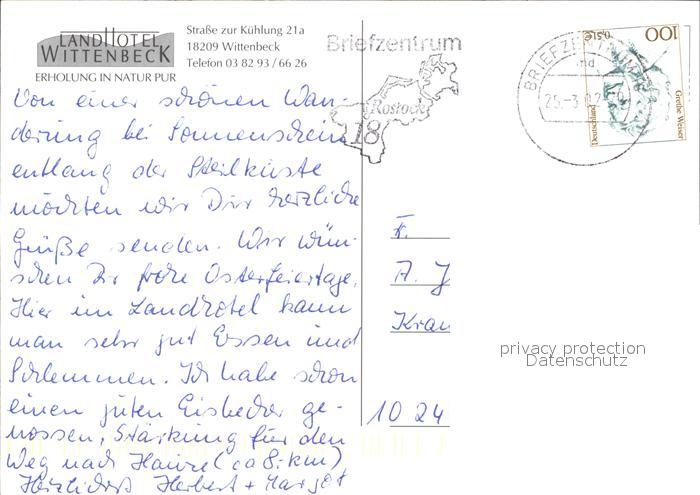 LANDHOTEL
WITTENBECK
ERHOLUNG IN NATUR PUR
Straße zur Kühlung 21a
18209 Wittenbeck
Telefon 03 82 93 / 66 26
Briefzentrum
Rostock
18
BRIEFZENTRUM
25.-3.02
100
0,51€
Grethe Weiser
Deutschland
Von einer schönen Wan-
derung bei Sonnenschein
entlang der Steilküste
möchten wir Dir herzliche
Grüße senden. Wir wün-
schen Dir frohe Osterfeiertage.
Hier im Landhotel kann
man sehr gut Essen und
Schlemmen. Ich habe schon
einen guten Eisbecher ge-
nossen, Stärkung für den
Weg nach Hause (ca 8 km)
Herzlichst Herbert + Margot
F.
A. J
Krau
10 24
privacy protection
Datenschutz